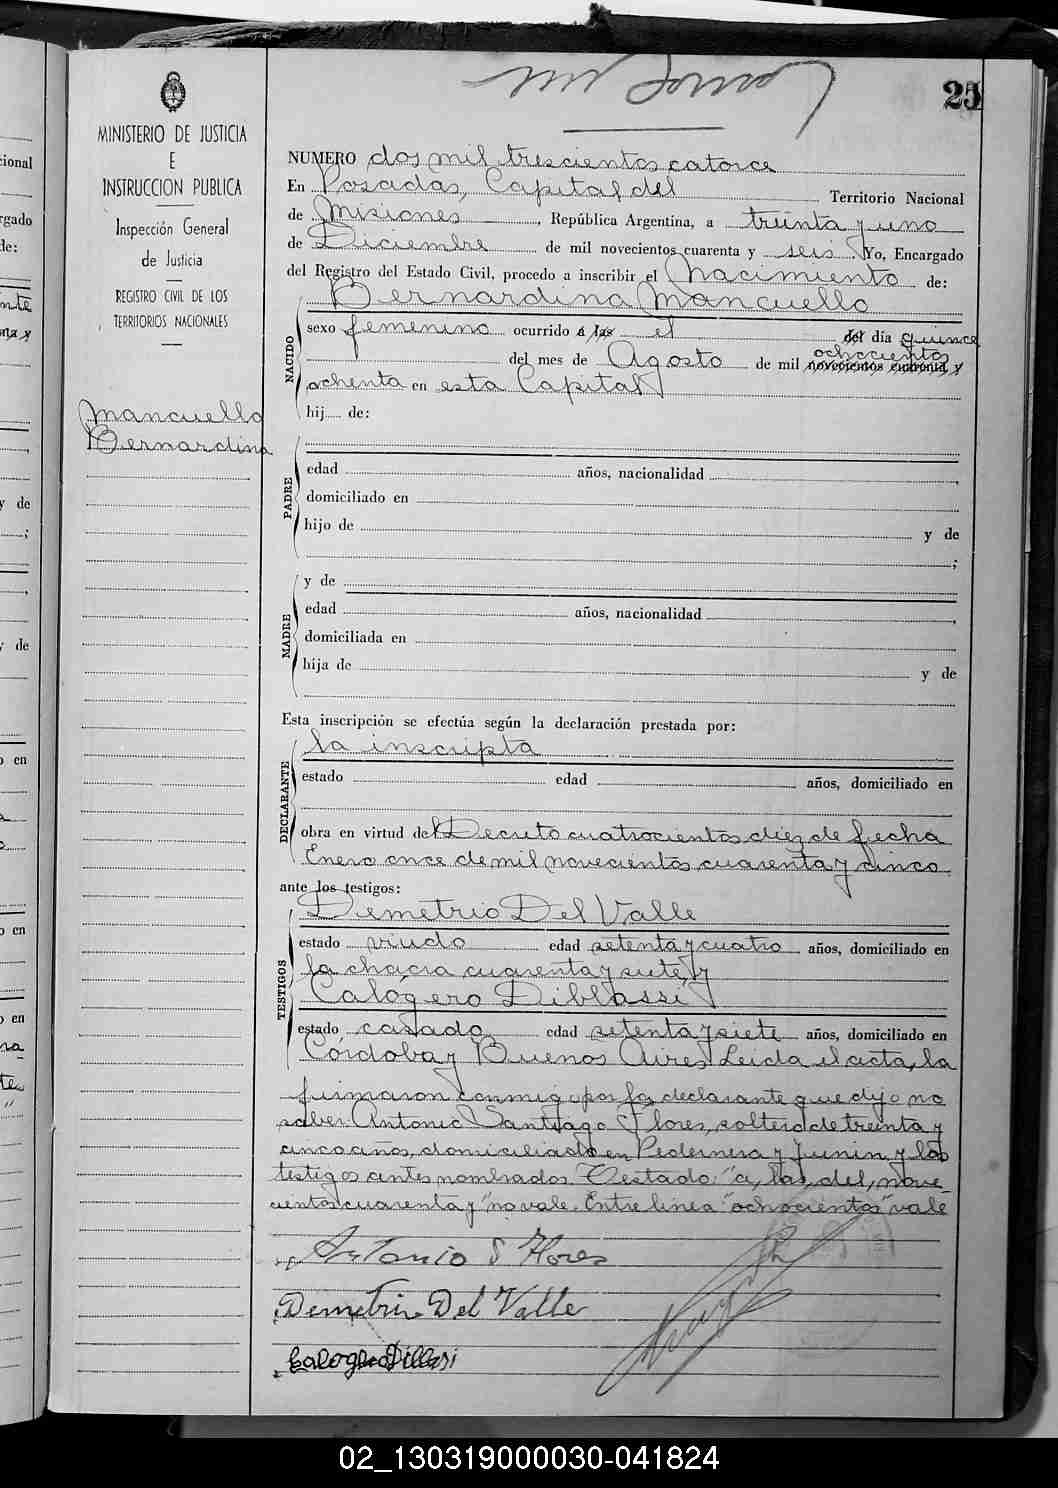 25
MINISTERIO DE JUSTICIA
E
INSTRUCCION PUBLICA
Inspección General
de Justicia
REGISTRO CIVIL DE LOS
TERRITORIOS NACIONALES
Mancuello
Bernardina
NUMERO dos mil trescientos catorce
En Posadas, Capital del Territorio Nacional
de Misiones, República Argentina, a treinta y uno
de Diciembre de mil novecientos cuarenta y seis. Yo, Encargado
del Registro del Estado Civil, procedo a inscribir el Nacimiento de:
Bernardina Mancuello
NACIDO
sexo femenino ocurrido á las el del día quince
ochocientos
del mes de Agosto de mil novecientos cuarenta y
ochenta en esta Capital
hij de:
PADRE
edad años, nacionalidad
domiciliado en
hijo de y de
;
MADRE
y de
edad años, nacionalidad
domiciliada en
hija de y de
Esta inscripción se efectúa según la declaración prestada por:
DECLARANTE
la inscripta
estado edad años, domiciliado en
obra en virtud del Decreto cuatrocientos diez de fecha
Enero once de mil novecientos cuarenta y cinco
ante los testigos:
TESTIGOS
Demetrio Del Valle
estado viudo edad setenta y cuatro años, domiciliado en
la chacra cuarenta y siete, y
Calógero Diblassi
estado casado edad setenta y siete años, domiciliado en
Córdoba y Buenos Aires. Leida el acta, la
firmaron conmigo por la declarante que dijo no
saber Antonio Santiago Flores, soltero de treinta y
cinco años, domiciliado en Pedernera y Junin y los
testigos antes nombrados. Testado: "a, las, del, nove-
cientos cuarenta y" no vale. Entre linea "ochocientos" vale
Antonio S Flores
Demetrio Del Valle
Calogero Dillasi
02_130319000030-041824